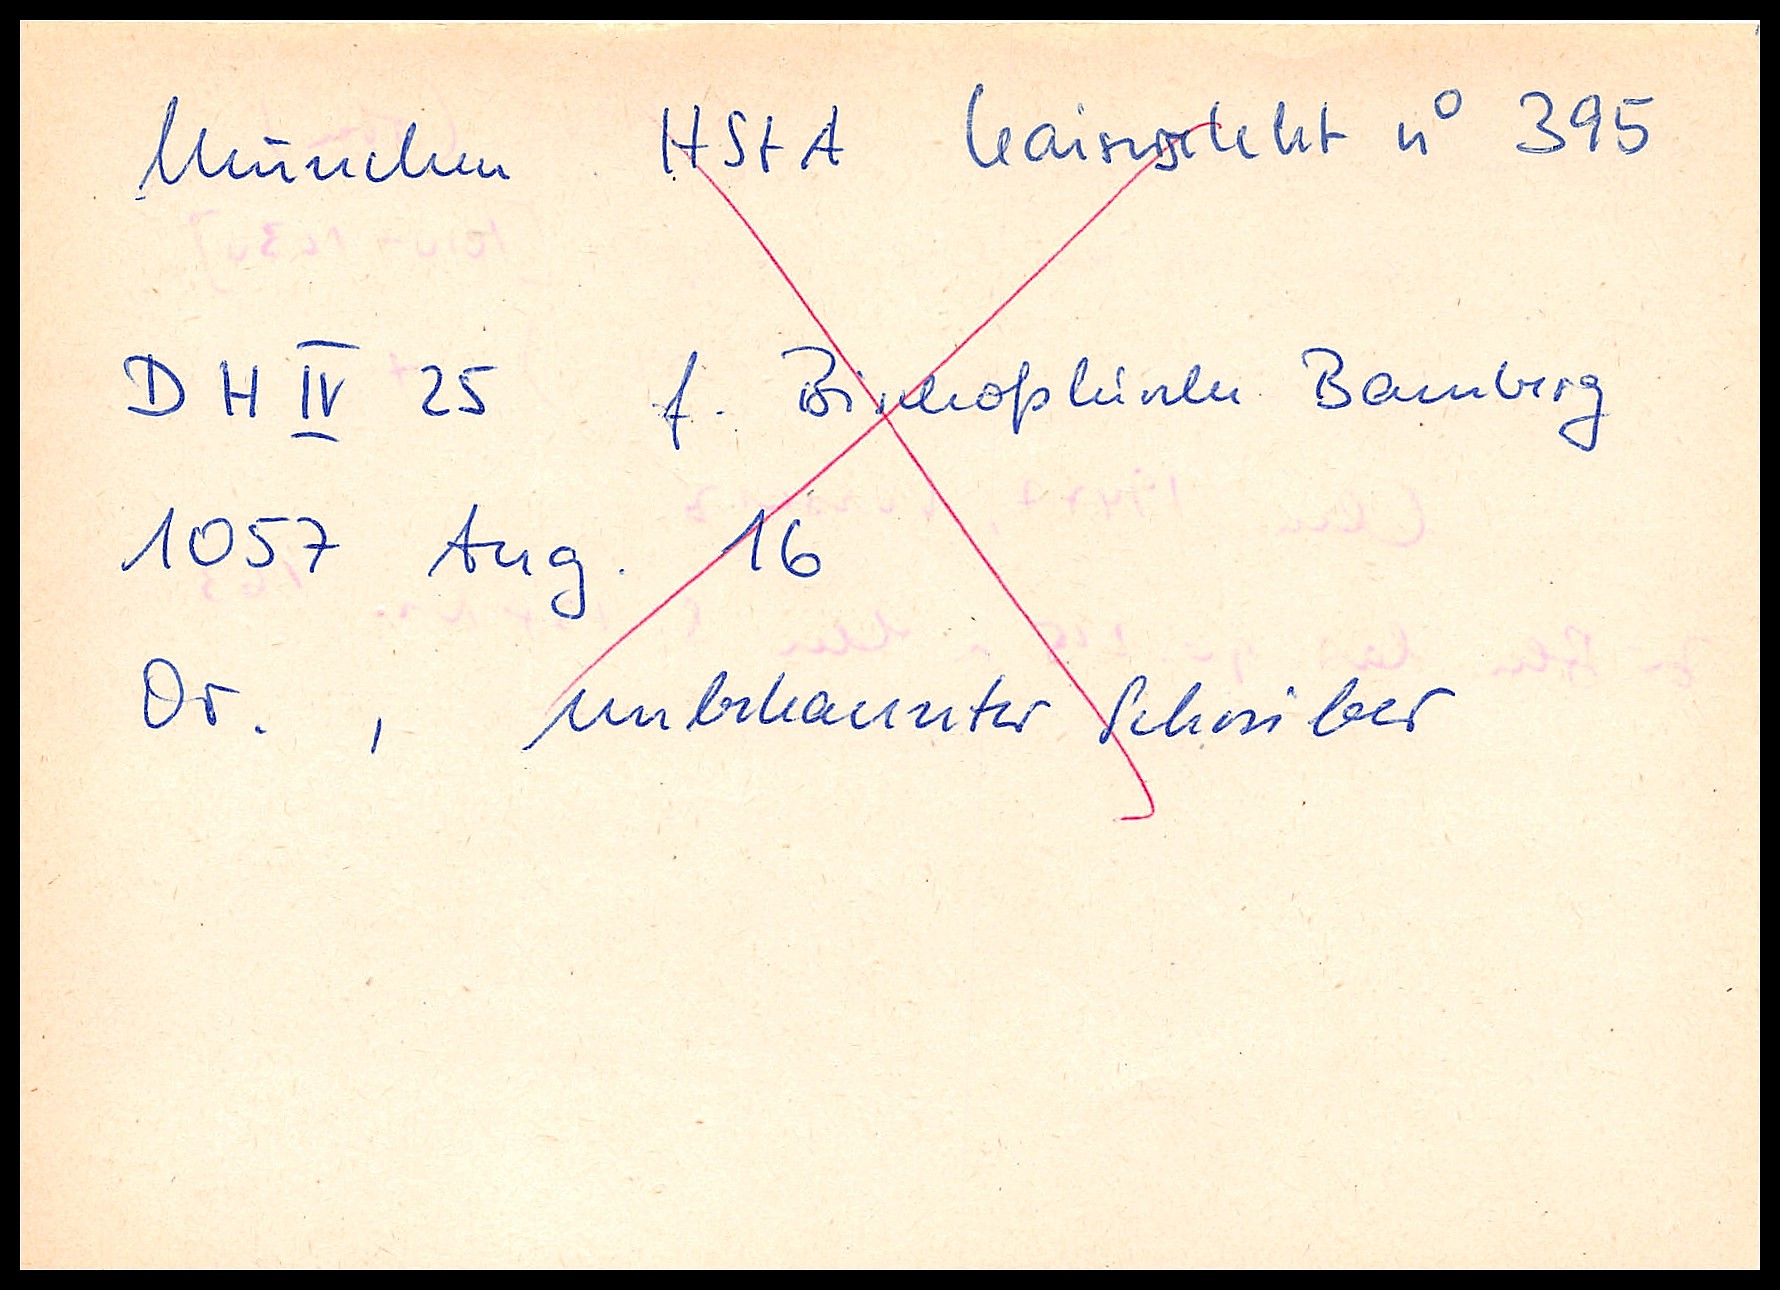 München HStA Kaiserselekt n° 395
D H IV 25 f. Bischofskirche Bamberg
1057 Aug. 16
Or. , unbekannter Schreiber